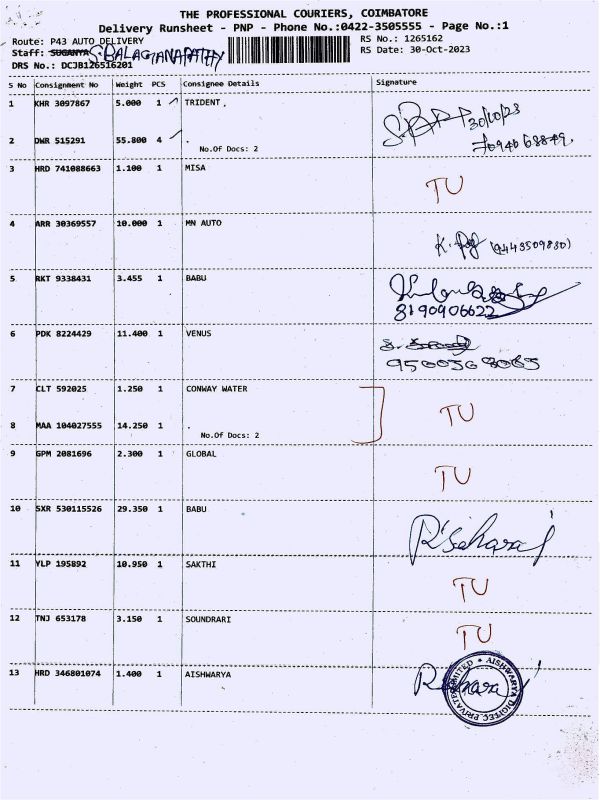 THE PROFESSIONAL COURIERS, COIMBATORE
Delivery Runsheet - PNP - Phone No.:0422-3505555 - Page No.:1
Route: P43 AUTO DELIVERY RS No.: 1265162
Staff: SUGANYA S.BALAGIANAPATHY RS Date: 30-Oct-2023
DRS No.: DCJB126516201
S No Consignment No Weight PCS Consignee Details Signature
1 KHR 3097867 5.000 1 TRIDENT. 30/10/23
2 DWR 515291 55.800 4 .
No.Of Docs: 2
3 HRD 741088663 1.100 1 MISA TU
4 ARR 30369557 10.000 1 MN AUTO
5 RKT 9338431 3.455 1 BABU
8190906622
6 PDK 8224429 11.400 1 VENUS
7 CLT 592025 1.250 1 CONWAY WATER TU
8 MAA 104027555 14.250 1 .
No.Of Docs: 2
9 GPM 2081696 2.300 1 GLOBAL TU
10 SXR 530115526 29.350 1 BABU
11 YLP 195892 10.950 1 SAKTHI TU
12 TNJ 653178 3.150 1 SOUNDRARI TU
13 HRD 346801074 1.400 1 AISHWARYA
AISHWARYA DIGITEC PRIVATE LIMITED